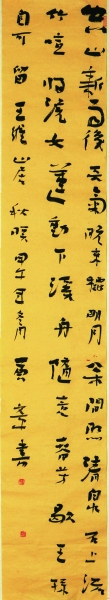 空山新雨後天氣晚來秋明月松間照清泉石上流
竹喧歸浣女蓮動下漁舟隨意春芳歇王孫
自可留王維山居秋暝甲午冬